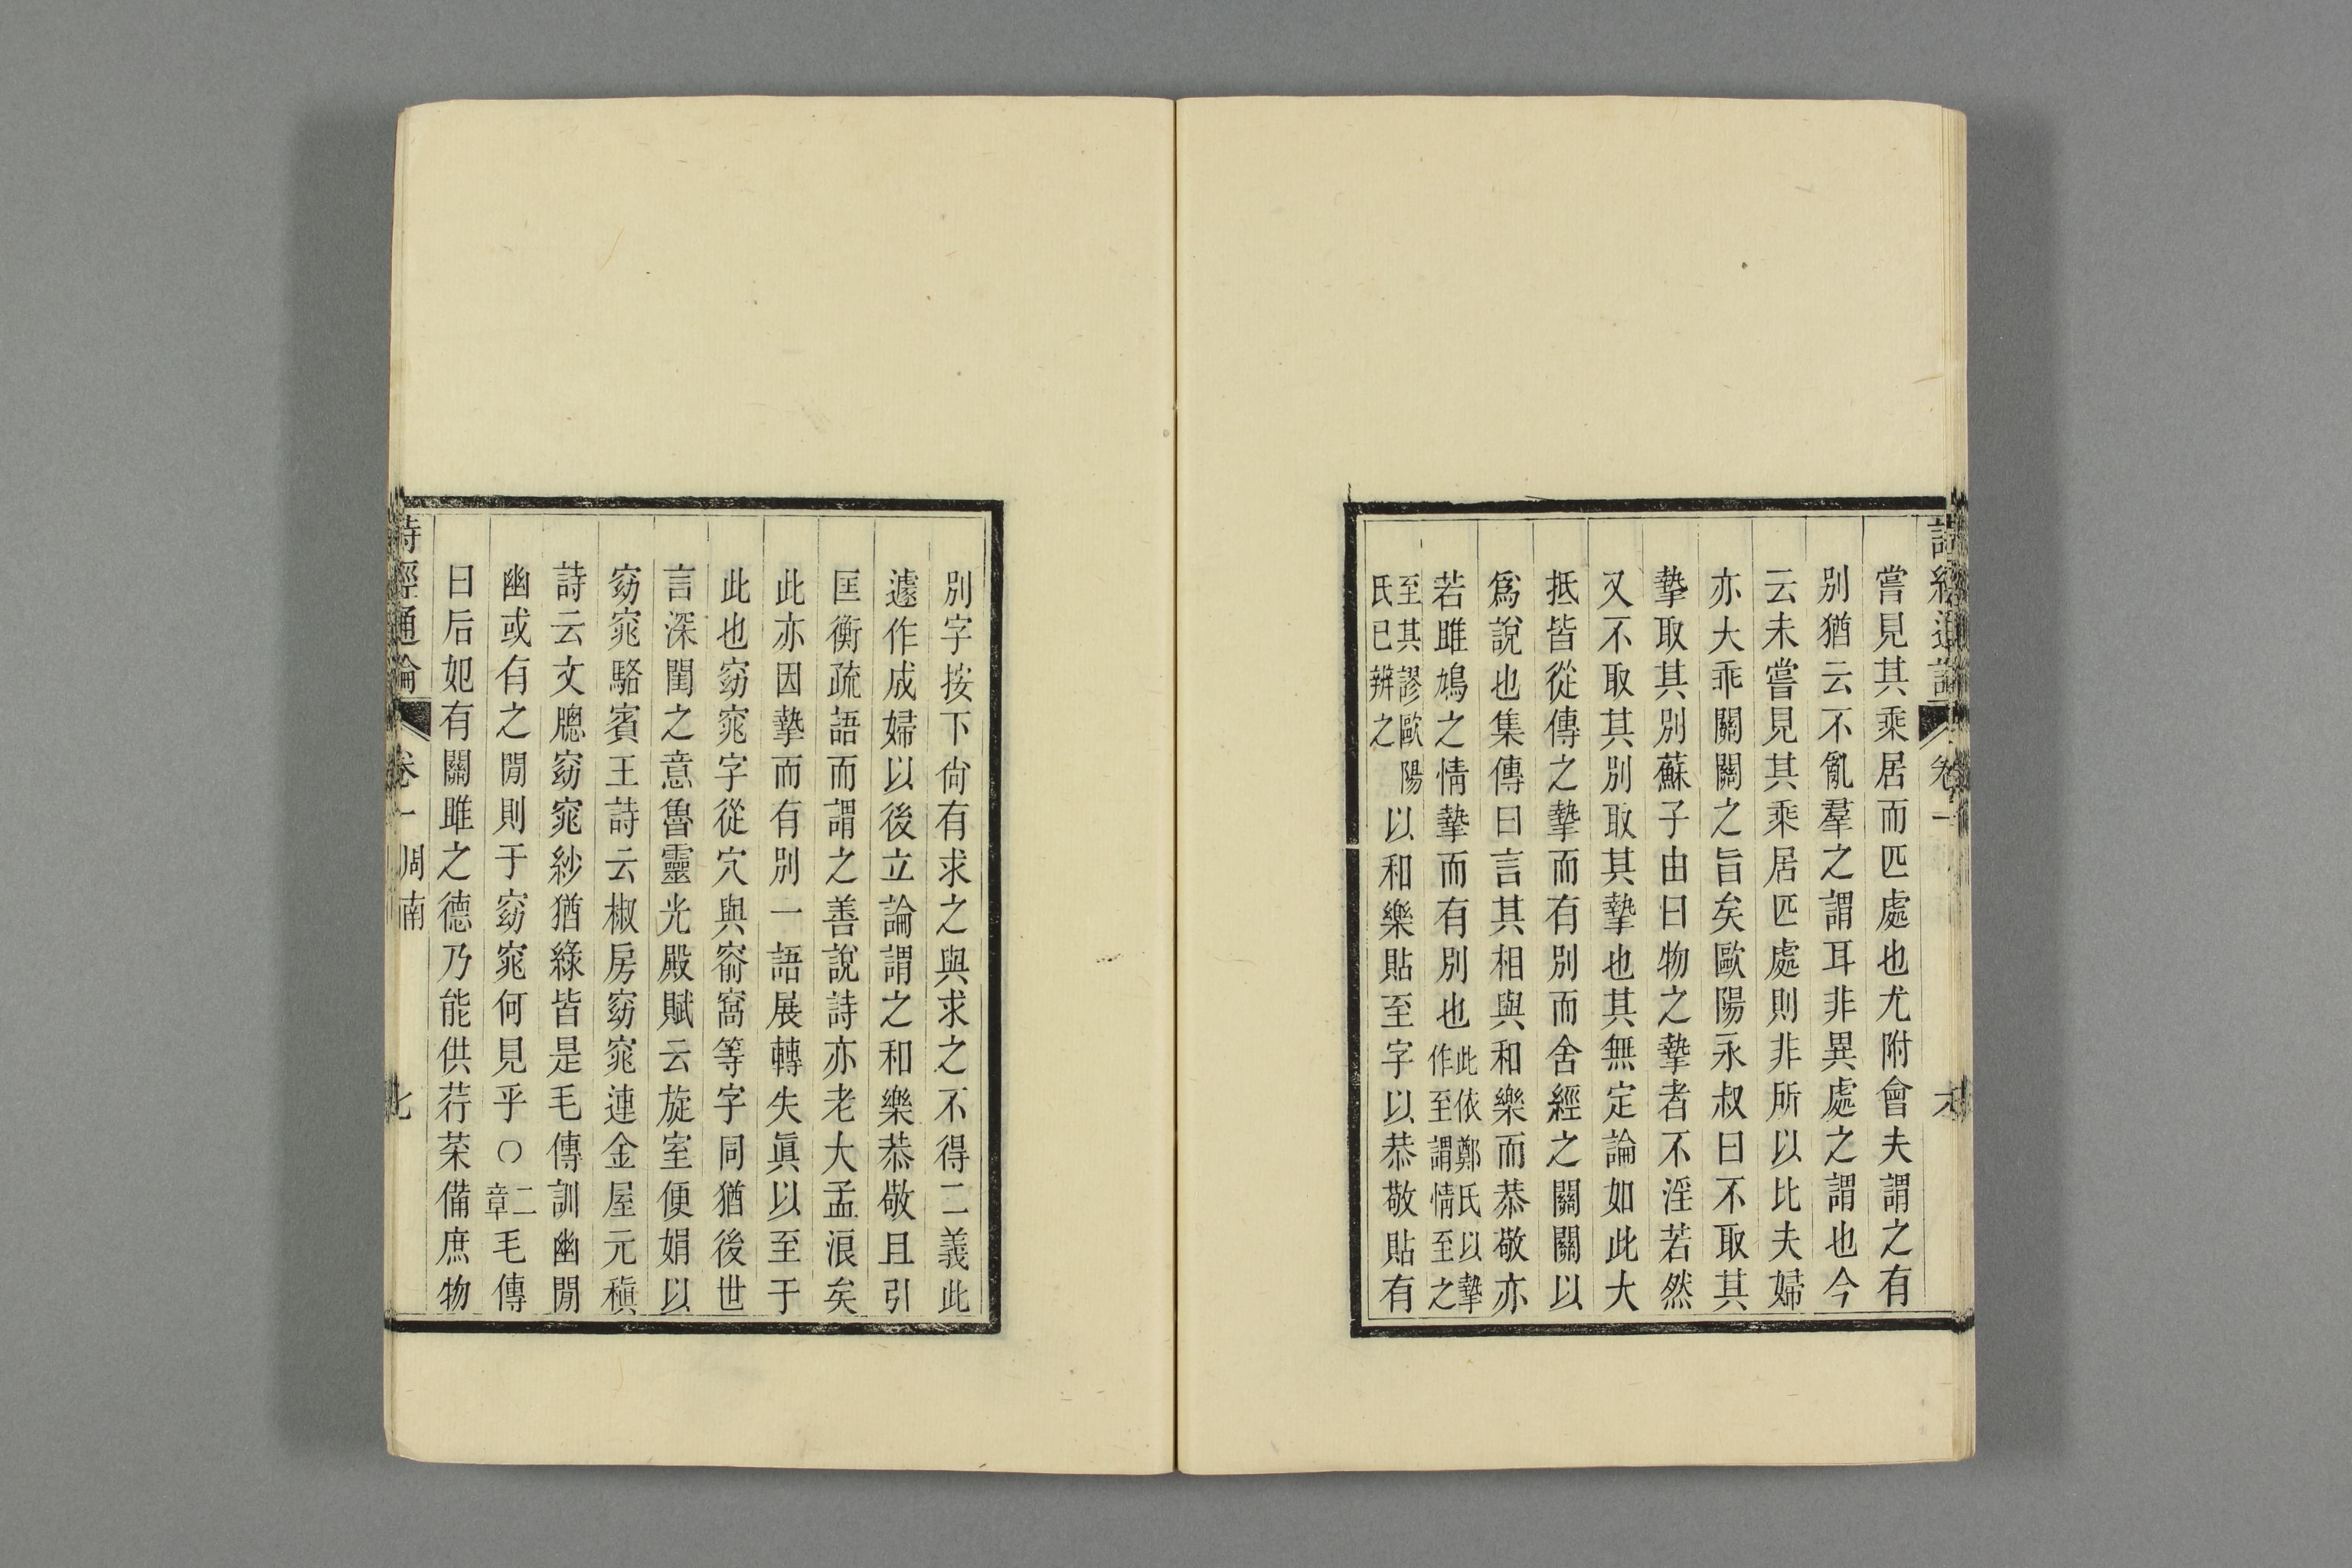 詩經通論 卷一 六
嘗見其乘居而匹處也尤附會夫謂之有
別猶云不亂羣之謂耳非異處之謂也今
云未嘗見其乘居匹處則非所以比夫婦
亦大乖關關之旨矣歐陽永叔曰不取其
摯取其別蘇子由曰物之摯者不淫若然
又不取其別取其摯也其無定論如此大
抵皆從傳之摯而有別而舍經之關關以
爲說也集傳曰言其相與和樂而恭敬亦
若雎鳩之情摯而有別也此依鄭氏以摯作至謂情至之
至其謬歐陽氏已辨之以和樂貼至字以恭敬貼有
別字按下尙有求之與求之不得二義此
遽作成婦以後立論謂之和樂恭敬且引
匡衡疏語而謂之善說詩亦老大孟浪矣
此亦因摯而有別一語展轉失眞以至于
此也窈窕字從穴與窬窩等字同猶後世
言深閨之意魯靈光殿賦云旋室㛹娟以
窈窕駱賓王詩云椒房窈窕連金屋元稹
詩云文牕窈窕紗猶綠皆是毛傳訓幽閒
幽或有之閒則于窈窕何見乎○二章毛傳
曰后妃有關雎之德乃能供荇菜備庶物
詩經通論 卷一 周南 七